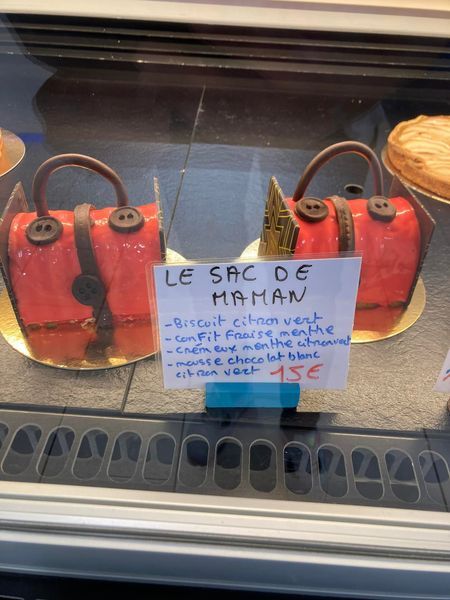 LE SAC DE
MAMAN
- Biscuit citron vert
- conFit Fraise menthe
- crémeux menthe citron vert
- mousse chocolat blanc
citron vert 15€